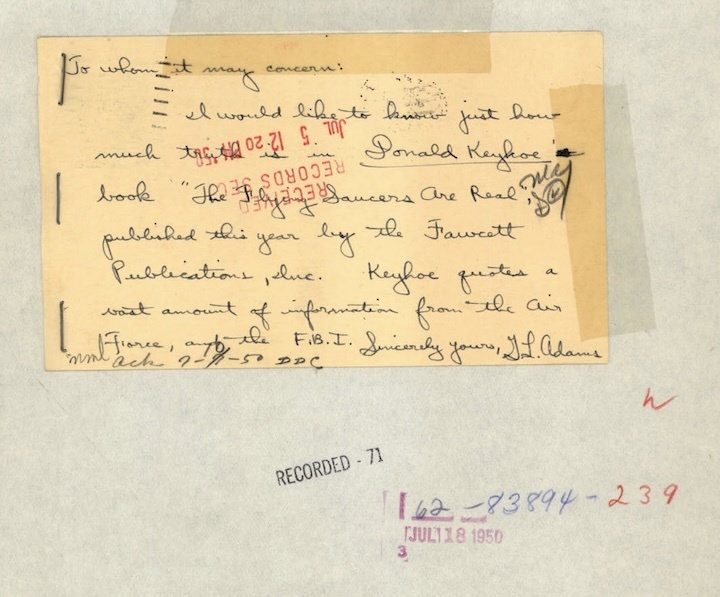 To whom it may concern:
I would like to know just how
much truth is in Donald Keyhoe's
book "The Flying Saucers Are Real,"
published this year by the Fawcett
Publications, Inc. Keyhoe quotes a
vast amount of information from the Air
Force, and the F.B.I. Sincerely yours, G.L. Adams
ack 7-11-50 DDC
JUL 5 12 20 PM '50
RECEIVED
RECORDS SEC
RECORDED - 71
62-83894-239
JUL 18 1950
3